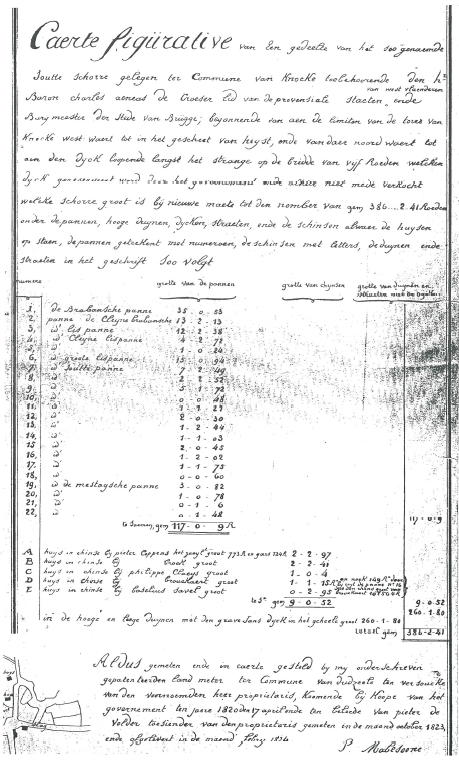 Caerte figurative van een gedeelte van het soo genaemde
Soutte schorre gelegen ter Commune van Knocke toebehoorende den hr
van west vlaenderen
Baron charles aeneas de Croeser Lid van de provensiale staeten, ende
Burgmeester der Stade van Brugge; begonnende van aen de limiten van de
Knocke west waert tot in het gescheet van heyst, ende van daer noord waert tot
aen den Dyck loopende langst het strange op de bridde van vyf Roeden welcken
dyck mede verkocht
welcke schorre groot is by nieuwe maete tot den nomber van gem 386...2.41 Roeden
onder de pannen, hooge duynen, dycken, straeten, ende de schinsen alwaer de huysen
op staen, de pannen geteekent met numeroen, de schinsen met letters, de duynen ende
straeten in het geschrift Soo volgt
numero grotte van de pannen grotte van chynsen grotte van duynen en
1, de Brabansche panne 35 - 0 - 53
2, panne de Cleyne brabansche 13 - 2 - 13
3, id lis panne 12 - 2 - 38
4, id Cleyne lispanne 4 - 2 - 72
5, id 1 - 0 - 24
6, id groote lispanne 15 - 0 - 94
7, id Soutte panne 7 - 2 - 49
8, id 2 - 2 - 52
9, id 5 - 1 - 72
10, id 0 - 0 - 48
11, id 1 - 1 - 27
12, id 2 - 0 - 30
13, id 1 - 2 - 44
14, id 1 - 1 - 03
15, id 2 - 0 - 45
16, id 1 - 2 - 02
17, id 1 - 1 - 75
18, id 0 - 0 - 60
19, id de mestaysche panne 3 - 0 - 82
20, id 1 - 0 - 78
21, id 0 - 1 - 6
22, id 0 - 1 - 48
te saemen, gem 117 - 0 - 9 R 117-0-9
A huys in chinse by pieter Coppens groot 2 - 2 - 97
B huys in chinse by groot 2 - 2 - 41
C huys in chinse by philippe Claeys groot 1 - 0 - 4
D huys in chinse by Brouckaert groot 1 - 1 - 15 R
E huys in chinse by baselius Savel groot 0 - 2 - 95
te Sm gem 9 - 0 - 52 9-0-52
260-1-80
in de hooge en leege duynen met den grave Jans dyck in het geheele groot 260 - 1 - 80
totael gem 386-2-41
Aldus gemeten ende in caerte gesteld by my onderschreven
gepatenteerden land meter ter Commune van dudzeele ten versoucke
van den vernoemden heer proprietaris, koomende by Koope van het
governement ten jare 1820 den 17 april ende ten beleede van pieter de
Volder toesiender van den proprietaris gemeten in de maend october 1823,
ende opgelevert in de maend febry 1824
P. Malesoone